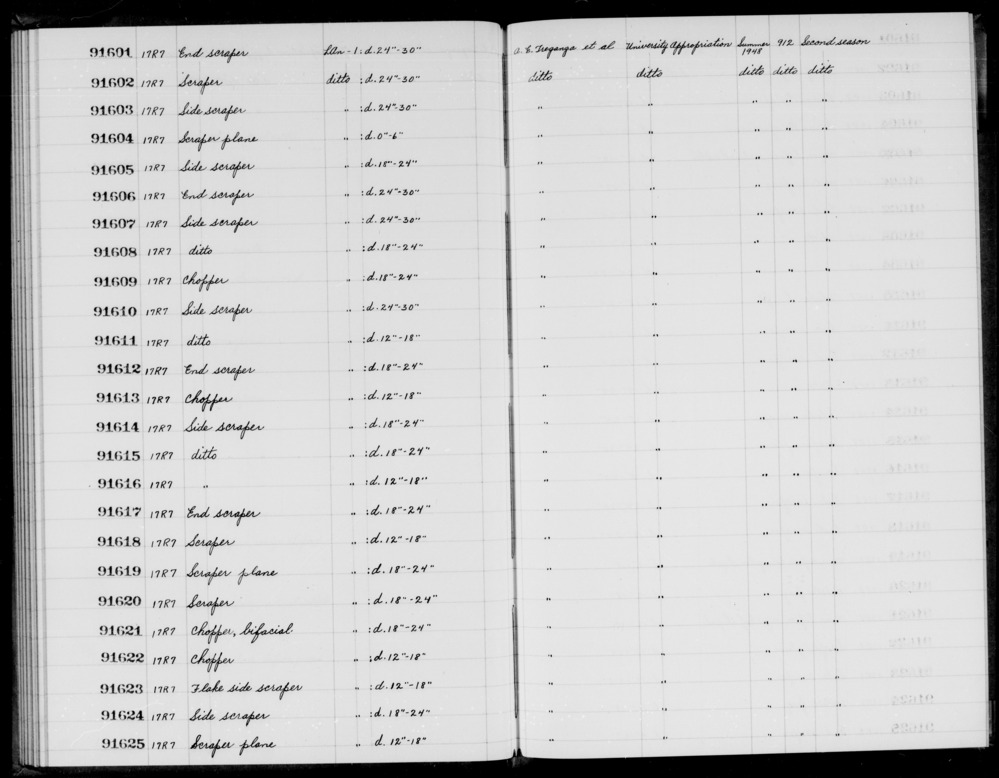 91601 17R7 End scraper LAn-1 :d.24"-30" A. E. Treganza et al University Appropriation Summer 1948 912 Second season
91602 17R7 Scraper ditto :d.24"-30" ditto ditto ditto ditto ditto
91603 17R7 Side scraper " :d.24"-30" " " " " "
91604 17R7 Scraper plane " :d.0"-6" " " " " "
91605 17R7 Side scraper " :d.18"-24" " " " " "
91606 17R7 End scraper " :d.24"-30" " " " " "
91607 17R7 Side scraper " :d.24"-30" " " " " "
91608 17R7 ditto " :d.18"-24" " " " " "
91609 17R7 Chopper " :d.18"-24" " " " " "
91610 17R7 Side scraper " :d.24"-30" " " " " "
91611 17R7 ditto " :d.12"-18" " " " " "
91612 17R7 End scraper " :d.18"-24" " " " " "
91613 17R7 Chopper " :d.12"-18" " " " " "
91614 17R7 Side scraper " :d.18"-24" " " " " "
91615 17R7 ditto " :d.18"-24" " " " " "
91616 17R7 " " :d.12"-18" " " " " "
91617 17R7 End scraper " :d.18"-24" " " " " "
91618 17R7 Scraper " :d.12"-18" " " " " "
91619 17R7 Scraper plane " :d.18"-24" " " " " "
91620 17R7 Scraper " :d.18"-24" " " " " "
91621 17R7 Chopper, bifacial " :d.18"-24" " " " " "
91622 17R7 Chopper " :d.12"-18" " " " " "
91623 17R7 Flake side scraper " :d.12"-18" " " " " "
91624 17R7 Side scraper " :d.18"-24" " " " " "
91625 17R7 Scraper plane " d.12"-18" " " " " "